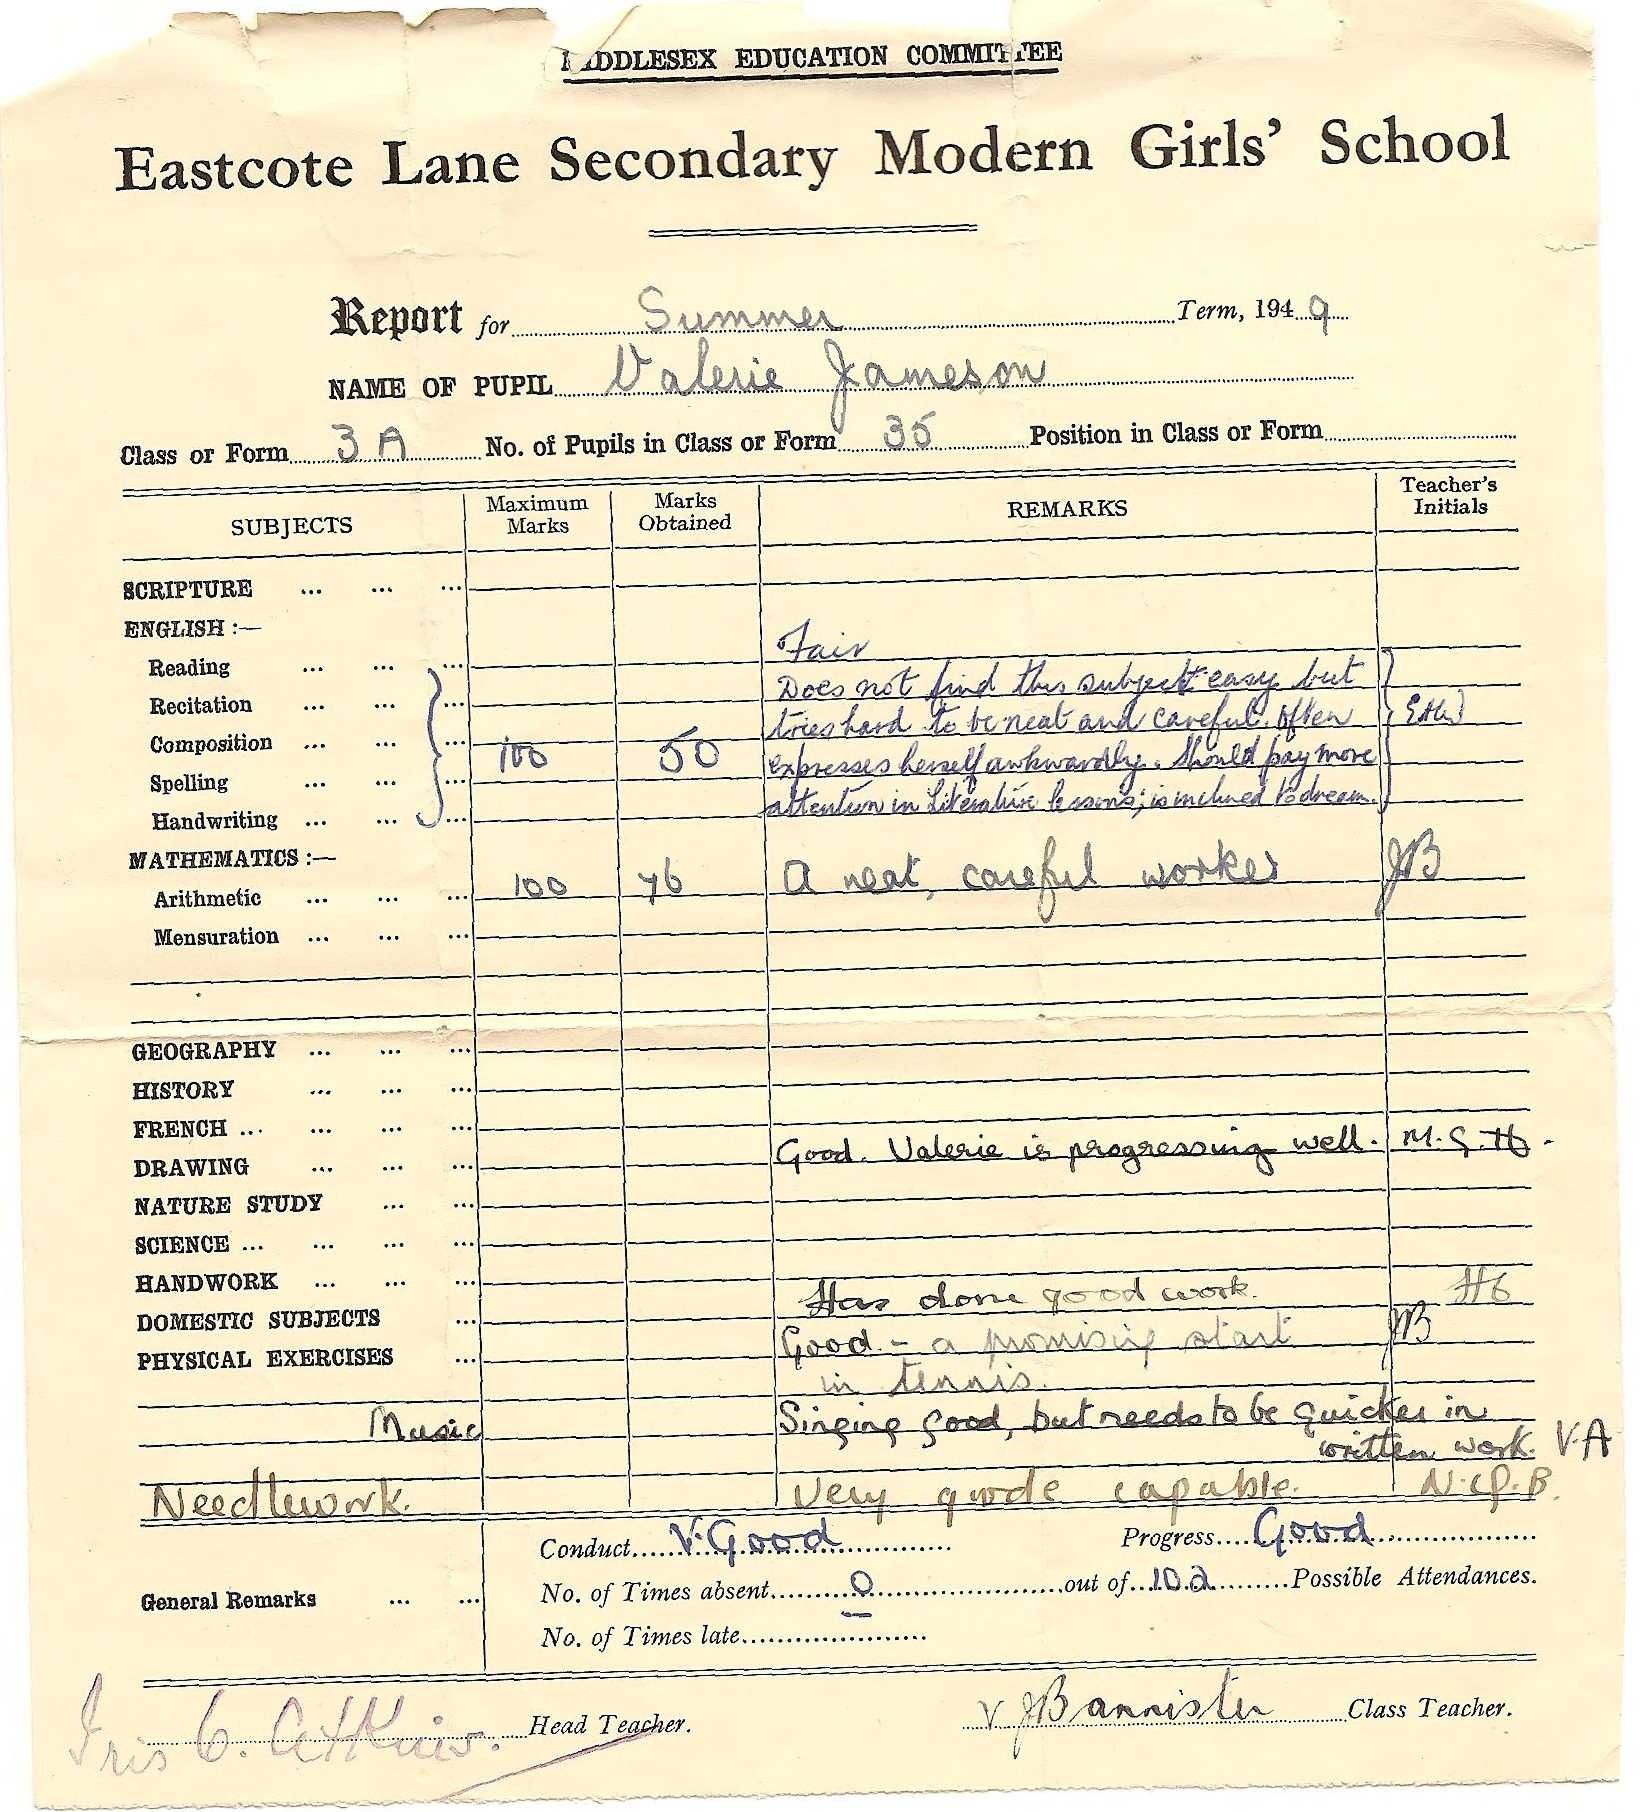 MIDDLESEX EDUCATION COMMITTEE
Eastcote Lane Secondary Modern Girls' School
Report for Summer Term, 1949
NAME OF PUPIL Valerie Jameson
Class or Form 3A No. of Pupils in Class or Form 35 Position in Class or Form
SUBJECTS Maximum Marks Marks Obtained REMARKS Teacher's Initials
SCRIPTURE ... ... ...
ENGLISH :— Fair
Reading ... ... ... Does not find this subject easy but
Recitation ... ... ... tries hard to be neat and careful. Often
Composition ... ... ... 100 50 expresses herself awkwardly. Should pay more
Spelling ... ... ... attention in Literature lessons; is inclined to dream.
Handwriting ... ... ...
MATHEMATICS :—
Arithmetic ... ... ... 100 76 A neat, careful worker JB
Mensuration ... ... ...
GEOGRAPHY ... ... ...
HISTORY ... ... ...
FRENCH ... ... ...
DRAWING ... ... ... Good. Valerie is progressing well. M.G.H.
NATURE STUDY ... ...
SCIENCE ... ... ... ...
HANDWORK ... ... ...
DOMESTIC SUBJECTS ... Has done good work.
PHYSICAL EXERCISES ... Good - a promising start JB
in tennis.
Music Singing good, but needs to be quicker in
written work. V.A
Needlework. Very good & capable.
Conduct V. Good Progress Good
General Remarks ... ... No. of Times absent 0 out of 102 Possible Attendances.
No. of Times late —
Iris C. Atkins. Head Teacher. V J Bannister Class Teacher.